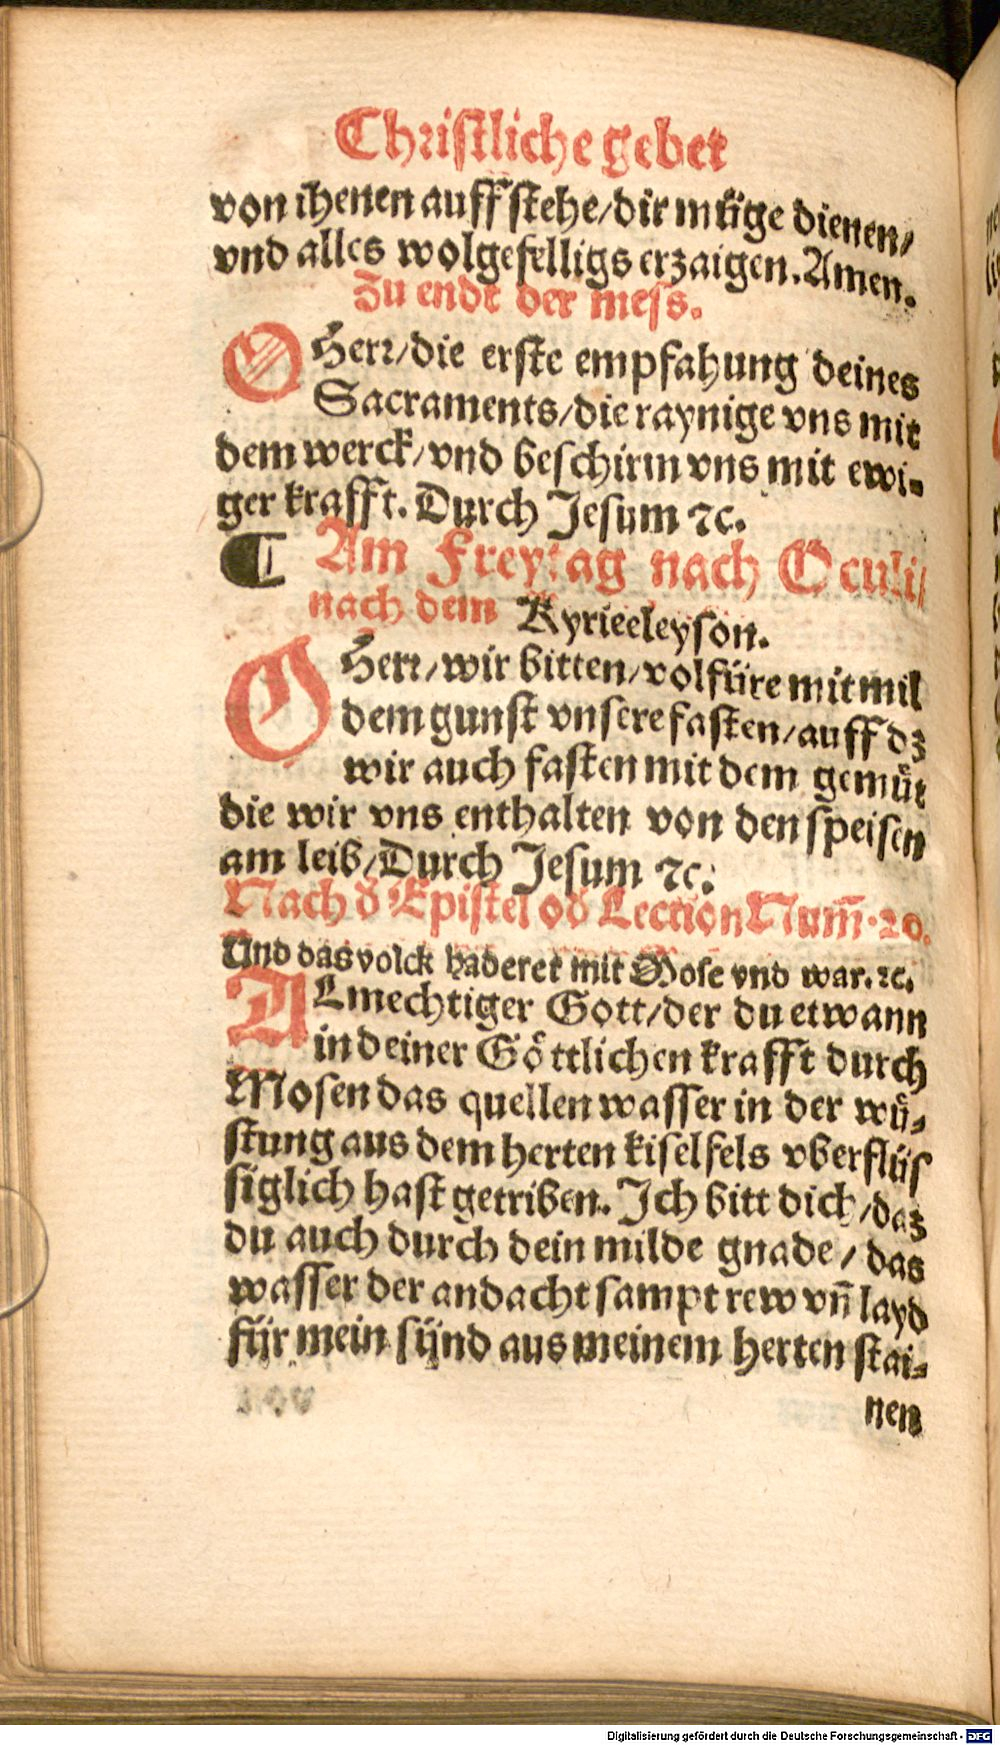 Christliche gebet
von ihenen auff stehe/dir müge dienen/
vnd alles wolgefelligs erzaigen. Amen.
Zu endt der mess.
O Herr/die erste empfahung deines
Sacraments/die raynige vns mit
dem werck/vnd beschirm vns mit ewi-
ger krafft. Durch Jesum ⁊c.
¶ Am Freytag nach Oculi/
nach dem Kyrieeleyson.
O Herr/wir bitten/volfüre mit mil
dem gunst vnsere fasten/auff dz
wir auch fasten mit dem gemuͤt
die wir vns enthalten von den speisen
am leib/Durch Jesum ⁊c.
Nach d' Epistel od' Lection Num̄. 20.
Vnd das volck haderet mit Mose vnd war. ⁊c.
ALmechtiger Gott/der du etwann
in deiner Goͤttlichen krafft durch
Mosen das quellen wasser in der wuͤ-
stung aus dem herten kiselfels vberflüs
siglich hast getriben. Ich bitt dich/das
du auch durch dein milde gnade/das
wasser der andacht sampt rew vn̄ layd
für mein sünd aus meinem herten stai-
nen
Digitalisierung gefördert durch die Deutsche Forschungsgemeinschaft - DFG